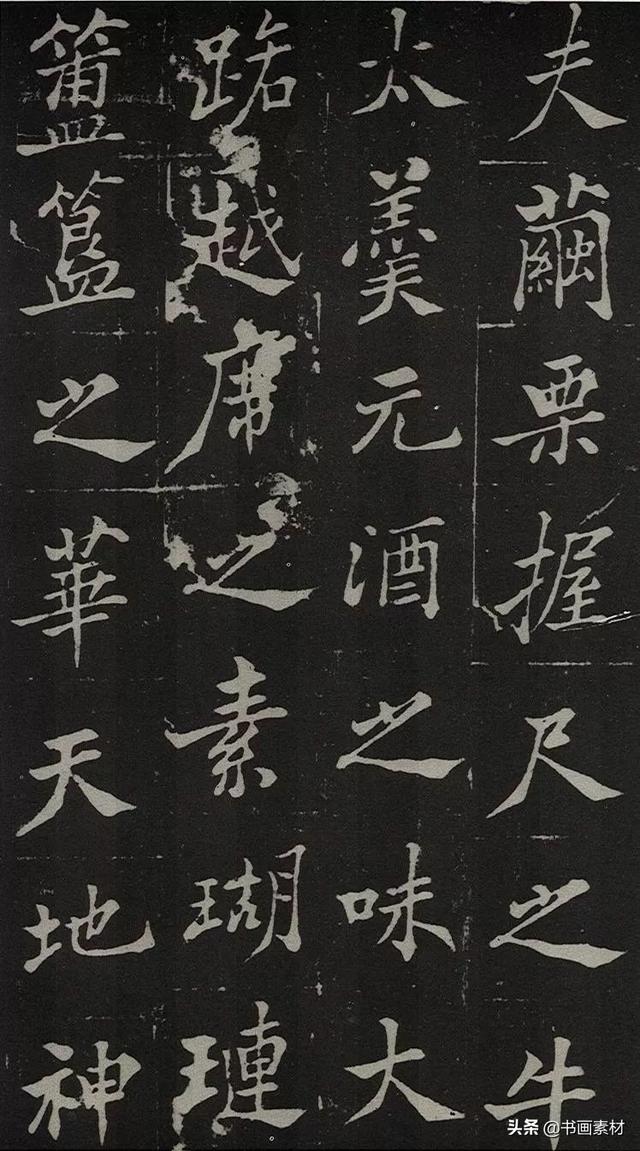 夫繭栗握尺之牛
太羹元酒之味大
路越席之素瑚璉
簠簋之華天地神
头条 @书画素材